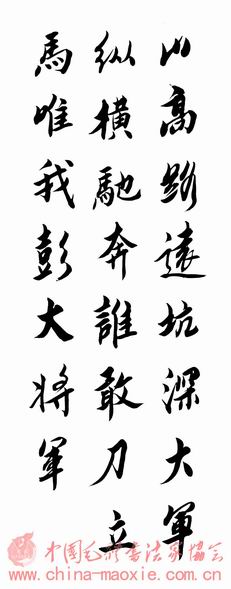 山高路遠坑深大軍
纵橫馳奔誰敢刀立
馬唯我彭大将軍
中国毛体书法家协会
www.china-maoxie.com.cn